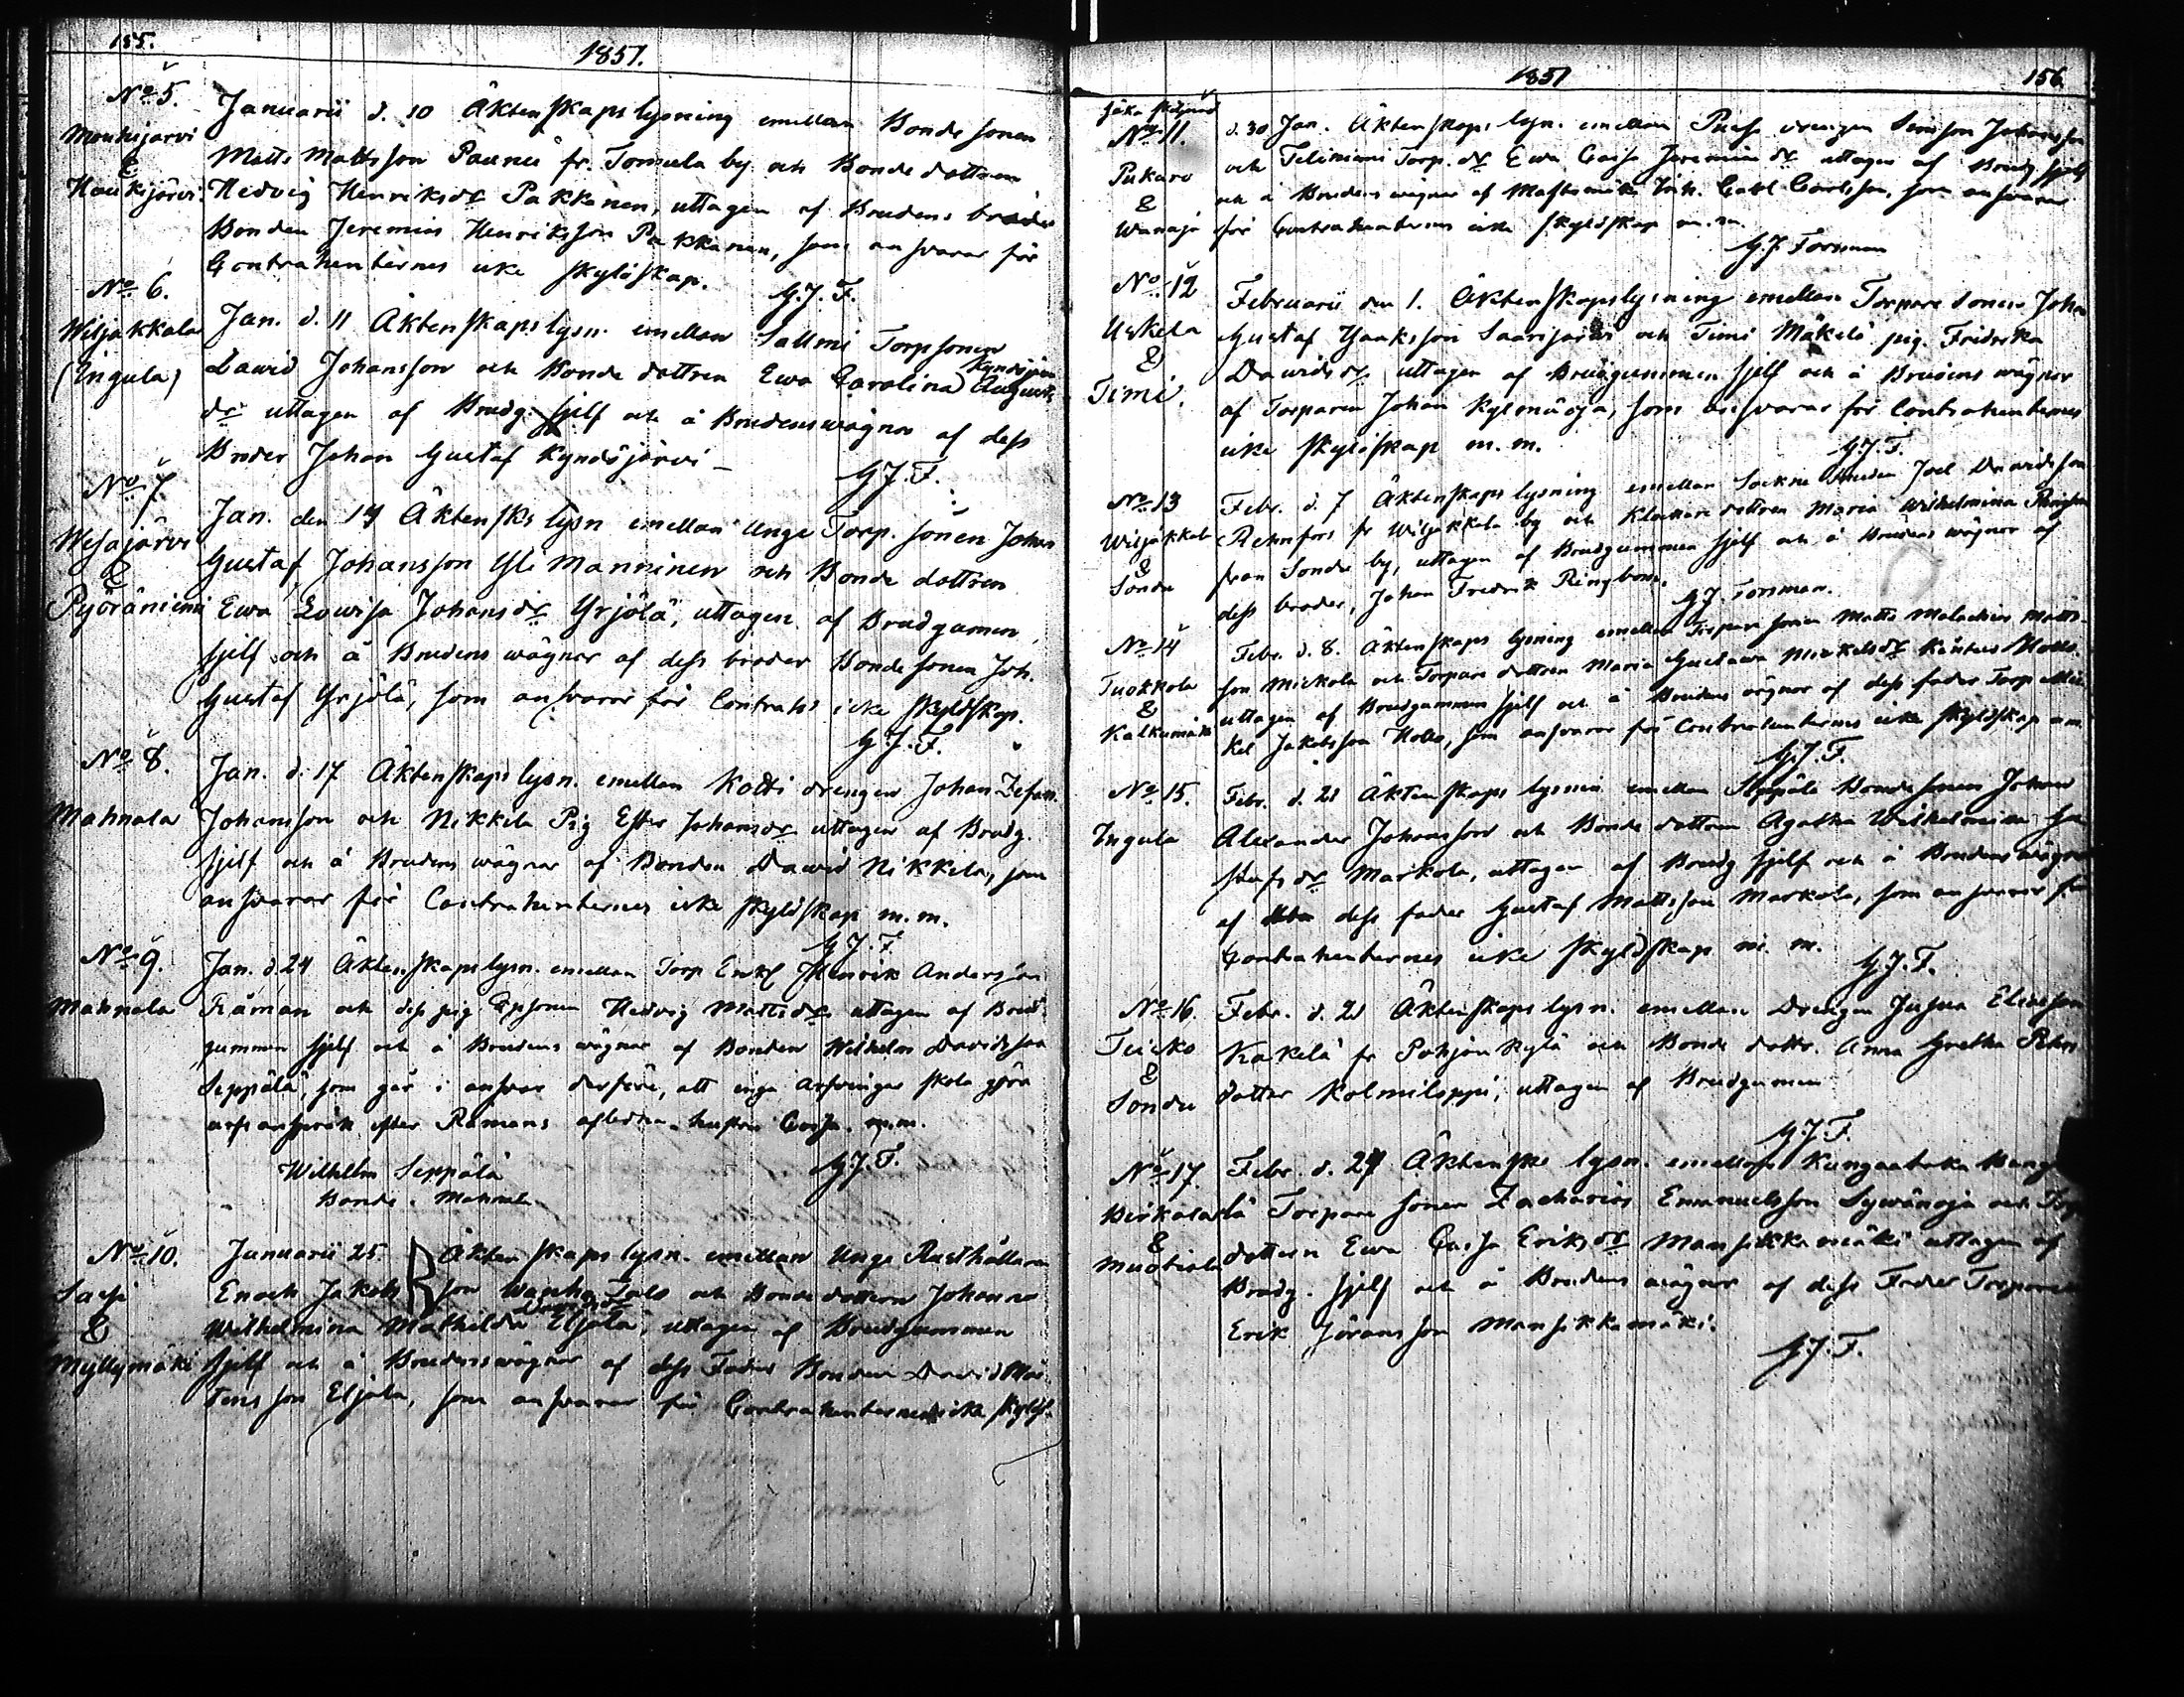 155.
1851.
No 5.
Mouhijärvi
&
Haukijärvi.
Januarii d. 10 Äktenskaps lysning emellan Bonde sonen
Matts Mattsson Paunu fr. Tomula by och Bonde dottren
Hedvig Henriksdr Pakkanen, uttagen af Brudens broder
Bonden Jeremias Henriksson Pakkanen, som ansvarar för
Contrahenternes icke skyldskap.
G.J.F.
No 6.
Wiljakkala
(Ingula)
Jan. d. 11 Äktenskaps lysn. emellan Sallmi Torpsonen
David Johansson och Bonde dottren Ewa Carolina Kyndsjärvi August
dr uttagen af Brudg. sjelf och å Brudens wägnar af dess
Broder Johan Gustaf Kyndsjärvi –
G.J.F.
No 7.
Wesajärvi
&
Pyöräniemi
Jan. den 14 Äktensks lysn emellan Unge Torp. sonen Johan
Gustaf Johansson Yli Manninen och Bonde dottren
Ewa Lowisa Johansdr Yrjölä, uttagen af Brudgumen
sjelf och å Brudens wägnar af dess broder Bonde sonen Joh.
Gustaf Yrjölä, som ansvarar för Contrahs icke skyldskap.
G.J.F.
No 8.
Mahnala
Jan. d. 17 Äktenskaps lysn. emellan Kotti drengen Johan
Johansson och Nikkila Pig Ester Johansdr uttagen af Brudg.
sjelf och å Brudens wägnar af Bonden David Nikkila, som
ansvarar för Contrahenternes icke skyldskap m.m.
G.J.F.
No 9.
Mahnala
Jan. d. 24 Äktenskaps lysn. emellan Torp Enkl Henrik Andersson
Råman och dess pig Hedvig Mattsdr uttagen af Brud
gummen sjelf och å Brudens wägnar af Bonden Wilhelm Davidsson
Seppälä, som går i ansvar derföre, att inga arfvingar skola göra
arfs anspråk efter Råmans aflidna hustru Caisa. m.m.
Wilhelm Seppälä
G.J.F.
Bonde i Mahnala
No 10.
Sasi
&
Myllymäki
Januarii 25. Äktenskaps lysn. emellan Unge Rusthållaren
Enoch Jakobsson Wanha Talo och Bonde dottren Johanna
Wilhelmina Mathilda Davidsdr Eljala, uttagen af Brudgummen
sjelf och å Brudens wägnar af dess Fader Bonden David Mår
tensson Eljala, som ansvarar för Contrahenternes icke skylds.
1851
156
No 11.
Pukaro
&
Wanaja
d. 30 Jan. Äktenskaps lysn. emellan drengen Simson Johansson
och Torp. dr Ewa Caisa Jeremiædr uttagen af Brudg sjelf
och å Brudens wägnar af Carl Carlsson, som ansvarar
för Contrahenternes icke skyldskap m.m.
G.J. Forsman
No 12
Uskela
&
Timi.
Februarii den 1. Äktenskapslysning emellan Torpare sonen Johan
Gustaf Isaksson Saarijärvi och Timi Mäkelä pig. Fridrika
Davidsdr, uttagen af Brudgummen sjelf och å Brudens wägnar
af Torparen Johan Kylmäoja, som ansvarar för Contrahenternes
icke skyldskap m.m.
G.J.F.
No 13
Wiljakkala
&
Sonda
Febr. d. 7 Äktenskaps lysning emellan Joel Davidsson
Rehnfors fr Wiljakkala by och Klockare dottren Maria Wilhelmina Ringbom
från Sonda by, uttagen af Brudgummen sjelf och å Brudens wägnar af
dess broder, Johan Fredrik Ringbom.
G.J. Forsman.
No 14
Tuokkola
&
Kalkunmäki
Febr. d. 8. Äktenskaps lysning emellan Torpare sonen Matts Malachias Matts
son Mickola och Torpare dottren Maria Gustawa Mickelsdr
uttagen af Brudgummen sjelf och å Brudens wägnar af dess fader Torp Mic
kel Jakobsson Hollo, som ansvarar för Contrahenternes icke skyldskap m m
G.J.F.
No 15.
Ingula
Febr. d. 21 Äktenskaps lysning emellan Seppälä Bonde sonen Johan
Alexander Johansson och Bonde dottren Agatha Wilhelmina Gu
stafsdr Markola, uttagen af Brudg sjelf och å Brudens wägnar
af dess fader Gustaf Mattsson Markola, som ansvarar för
Contrahenternes icke skyldskap m. m.
G.J.F.
No 16.
&
Sonda
Febr. d. 21 Äktenskaps lysn. emellan Drengen Josua Eliasson
Kakelä fr Pohjankylä och Bonde dottr. Anna Gretha
dotter Kolmiloppi, uttagen af Brudgumen
G.J.F.
No 17.
&
Febr. d. 24 Äktensks lysn. emellan
lä Torpare sonen Zacharias Emanuelsson Sywänoja och
dottren Ewa Caisa Eriksdr Mansikkamäki uttagen af
Brudg. sjelf och å Brudens wägnar af dess Fader Torparen
Erik Jöransson Mansikkamäki.
G.J.F.